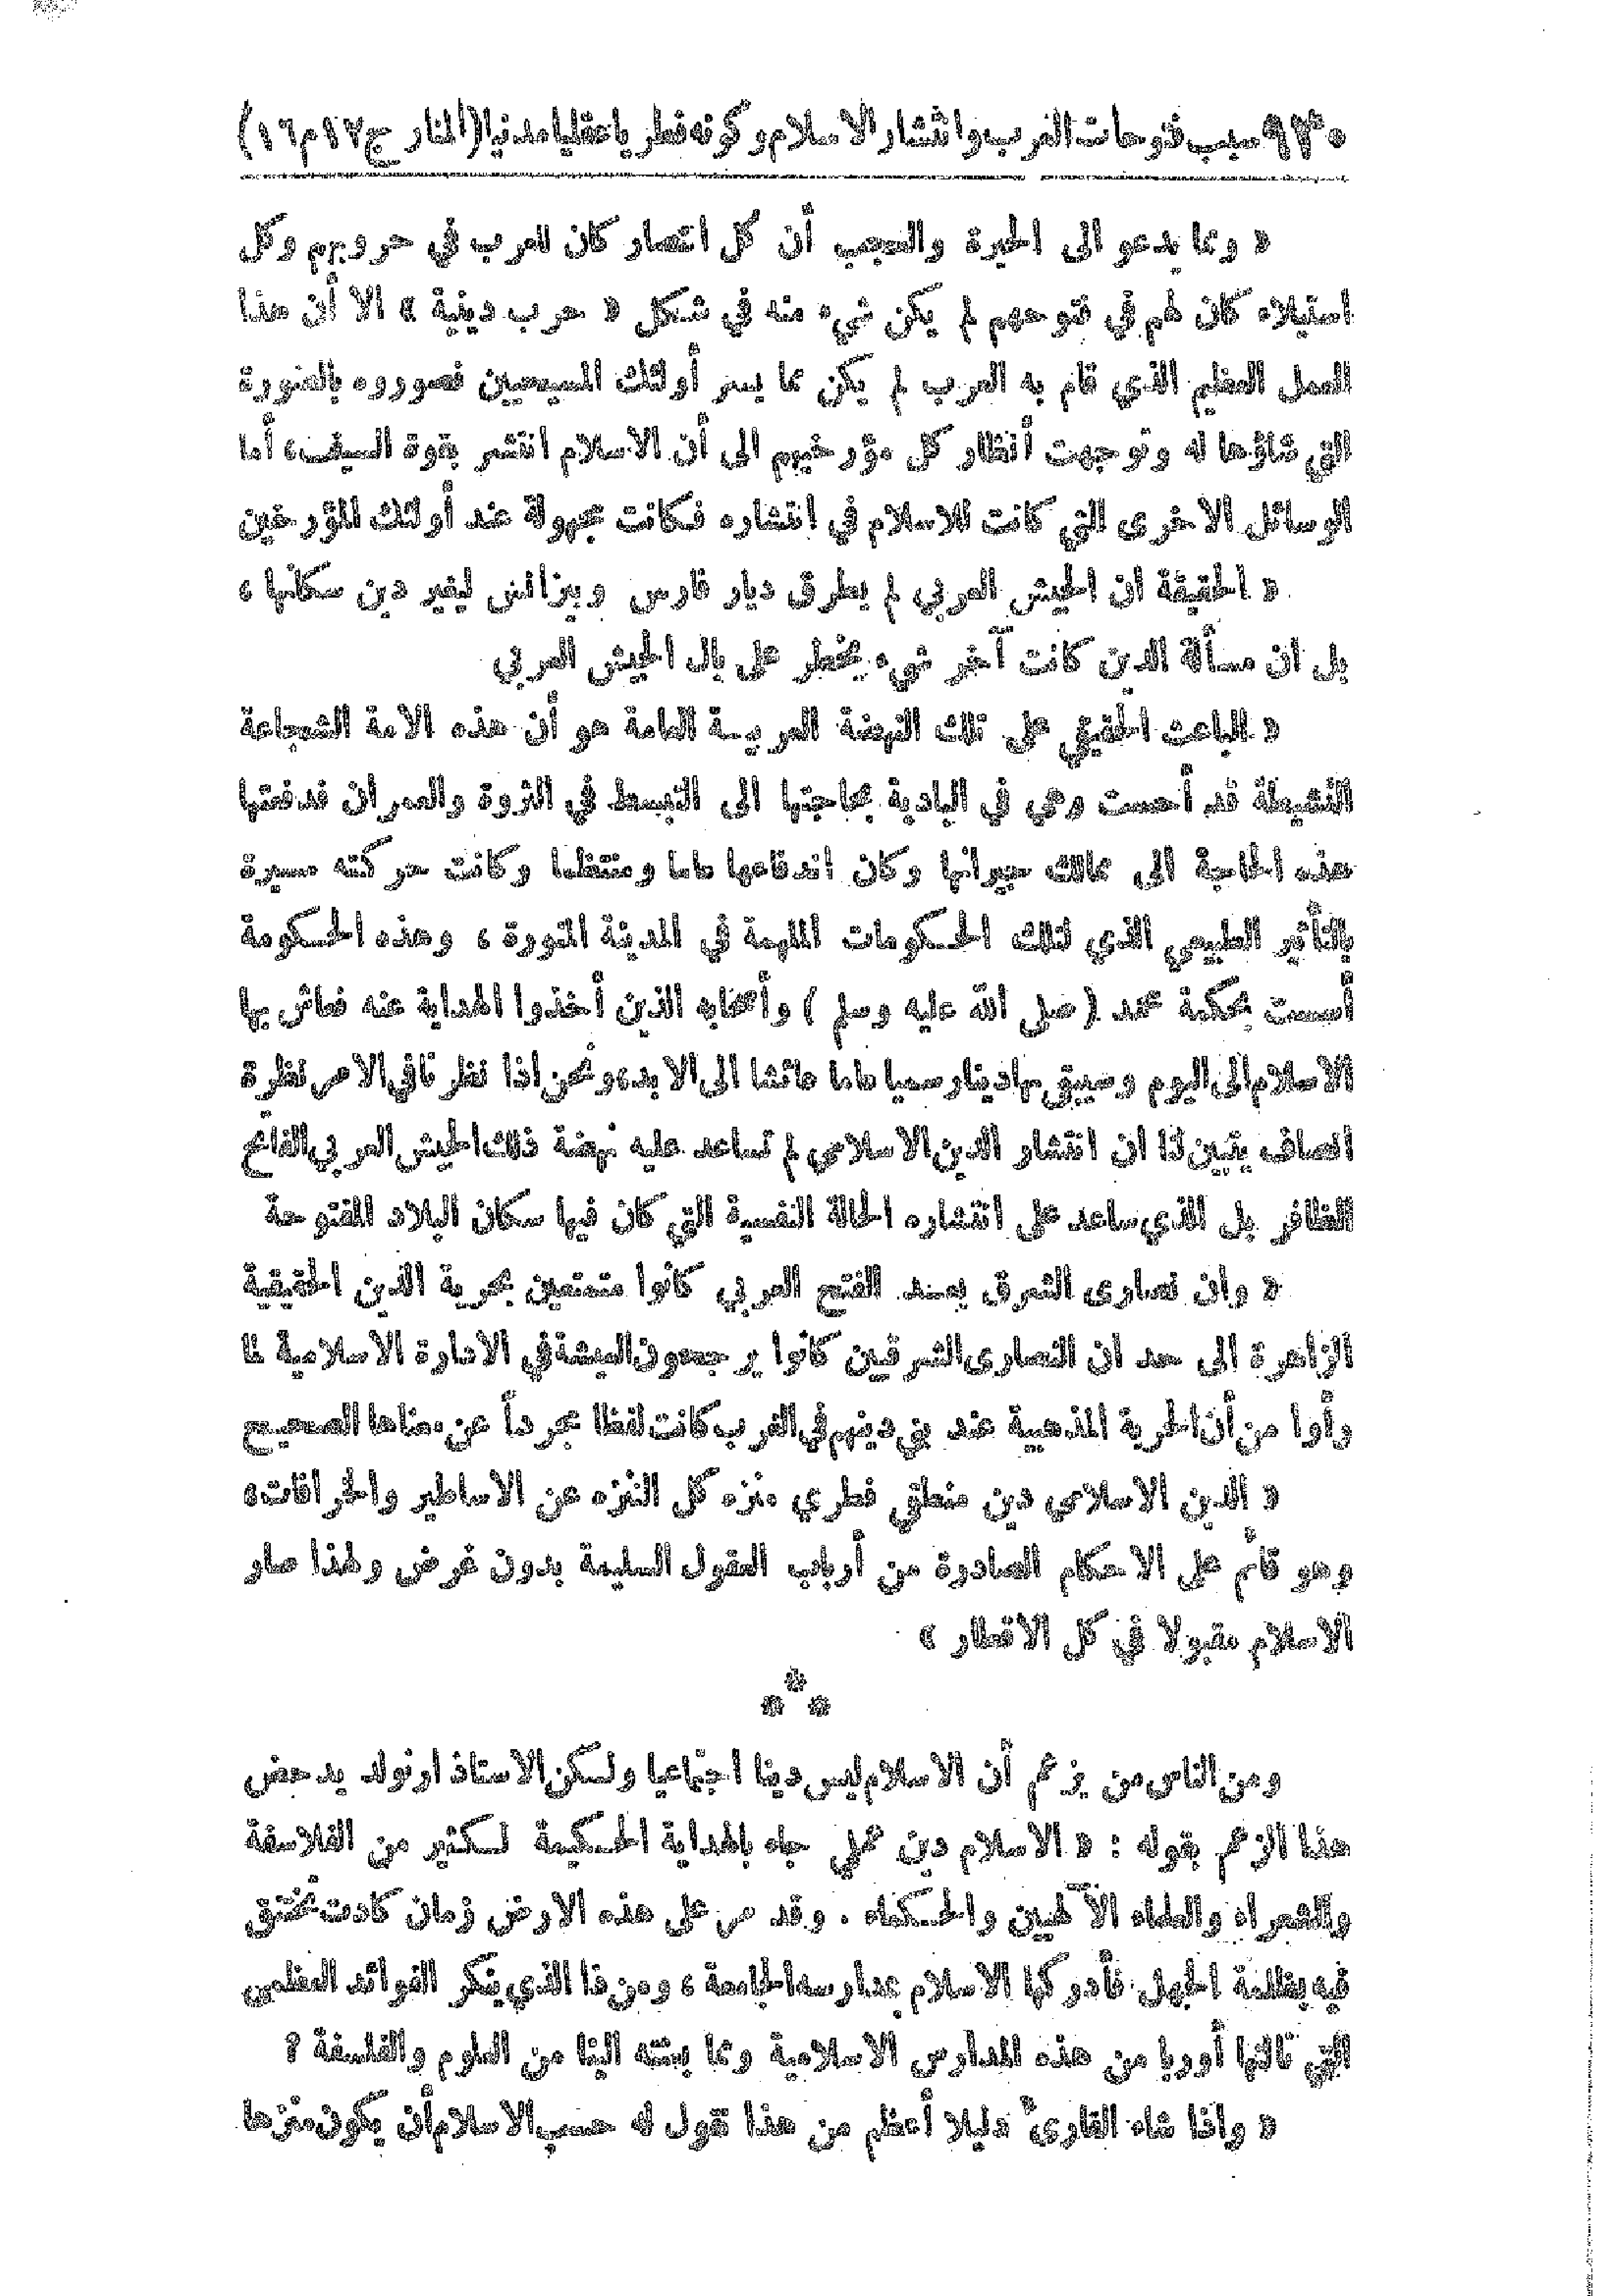 ٩٣٠ سبب فتوحات العرب وانتشار الاسلام وكونه فطريا عقليا مدنيا (المنار ج١٢م١٦)
« ومما يدعو الى الحيرة والعجب أن كل انتصار كان للعرب في حروبهم وكل
استيلاء كان لهم في فتوحهم لم يكن شيء منه في شكل « حرب دينية » الا أن هذا
العمل العظيم الذي قام به العرب لم يكن مما يسر أولئك المسيحيين فصوروه بالصورة
التي شاؤها له وتوجهت أنظار كل مؤرخيهم الى أن الاسلام انتشر بقوة السيف، أما
الوسائل الاخرى التي كانت للاسلام في انتشاره فكانت مجهولة عند أولئك المؤرخين
« الحقيقة ان الجيش العربي لم يطرق ديار فارس وبيزانس ليغير دين سكانها ،
بل ان مسألة الدين كانت آخر شيء يخطر على بال الجيش العربي
« الباعث الحقيقي على تلك النهضة العربية العامة هو أن هذه الامة الشجاعة
النشيطة قد أحست وهي في البادية بحاجتها الى التبسط في الثروة والعمران فدفعتها
هذه الحاجة الى ممالك جيرانها وكان اندفاعها عاما ومنتظما وكانت حركته مسيرة
بالتأثير الطبيعي الذي لتلك الحكومات الملهمة في المدينة المنورة ، وهذه الحكومة
أسست بحكمة محمد ( صلى الله عليه وسلم ) وأصحابه الذين أخذوا الهداية عنه فعاش بها
الاسلام الى اليوم وسيبقى بها دينا رسميا عاما عائشا الى الابد، ونحن اذا نظرنا في الامر نظرة
انصاف يتبين لنا ان انتشار الدين الاسلامي لم تساعد عليه نهضة ذلك الجيش العربي الفاتح
الظافر بل الذي ساعد على انتشاره الحالة النفسية التي كان فيها سكان البلاد المفتوحة
« وان نصارى الشرق بعد الفتح العربي كانوا متمتعين بحرية الدين الحقيقية
الزاهرة الى حد ان النصارى الشرقيين كانوا يرجحون العيشة في الادارة الاسلامية لما
رأوا من أن الحرية المذهبية عند بني دينهم في الغرب كانت لفظا مجرداً عن معناها الصحيح
« الدين الاسلامي دين منطقي فطري منزه كل التنزه عن الاساطير والخرافات،
وهو قائم على الاحكام الصادرة من أرباب العقول السليمة بدون غرض ولهذا صار
الاسلام مقبولا في كل الاقطار »
* * *
ومن الناس من يزعم أن الاسلام ليس دينا اجتماعيا ولكن الاستاذ ارنولد يدحض
هذا الزعم بقوله : « الاسلام دين عملي جاء بالهداية الحكيمة لكثير من الفلاسفة
والشعراء والعلماء الآلهيين والحكماء . وقد مر على هذه الارض زمان كادت تختنق
فيه بظلمة الجهل فأدركها الاسلام بمدارسه الجامعة ، ومن ذا الذي ينكر الفوائد العظمى
التي نالتها أوربا من هذه المدارس الاسلامية وما بعثته الينا من العلوم والفلسفة ؟
« واذا شاء القارئ دليلا أعظم من هذا نقول له حسب الاسلام أن يكون منزها